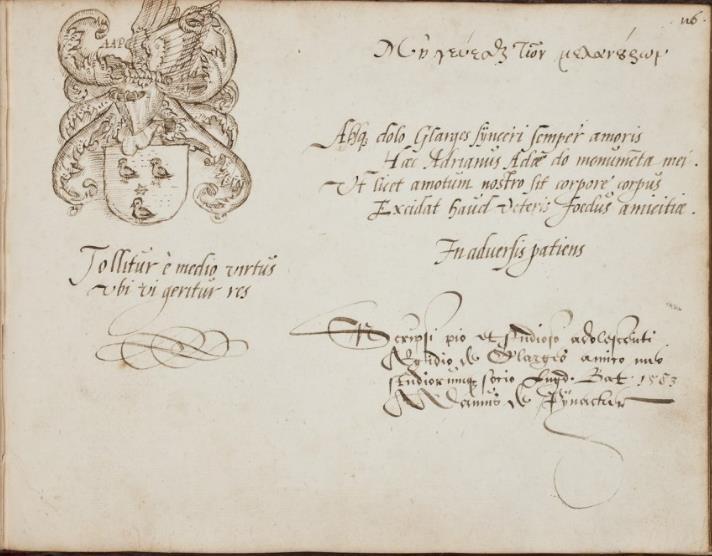 116.
AAPC
Μὴ γεύεσθαι τῶν μελανούρων
Absq. dolo Glarges synceri semper amoris
Hæc Adrianus Adæ do monumēta mei.
Vt licet amotum nostro sit corpore corpus
Excidat haud veteris foedus amicitiæ.
In adversis patiens
Tollitur è medio virtus
vbi vi geritur res
Scripsi pio et studioso adolescenti
Ægidio de Glarges amico meo
studiorumq; socio Lugd. Bat. 1583
de Pynacker